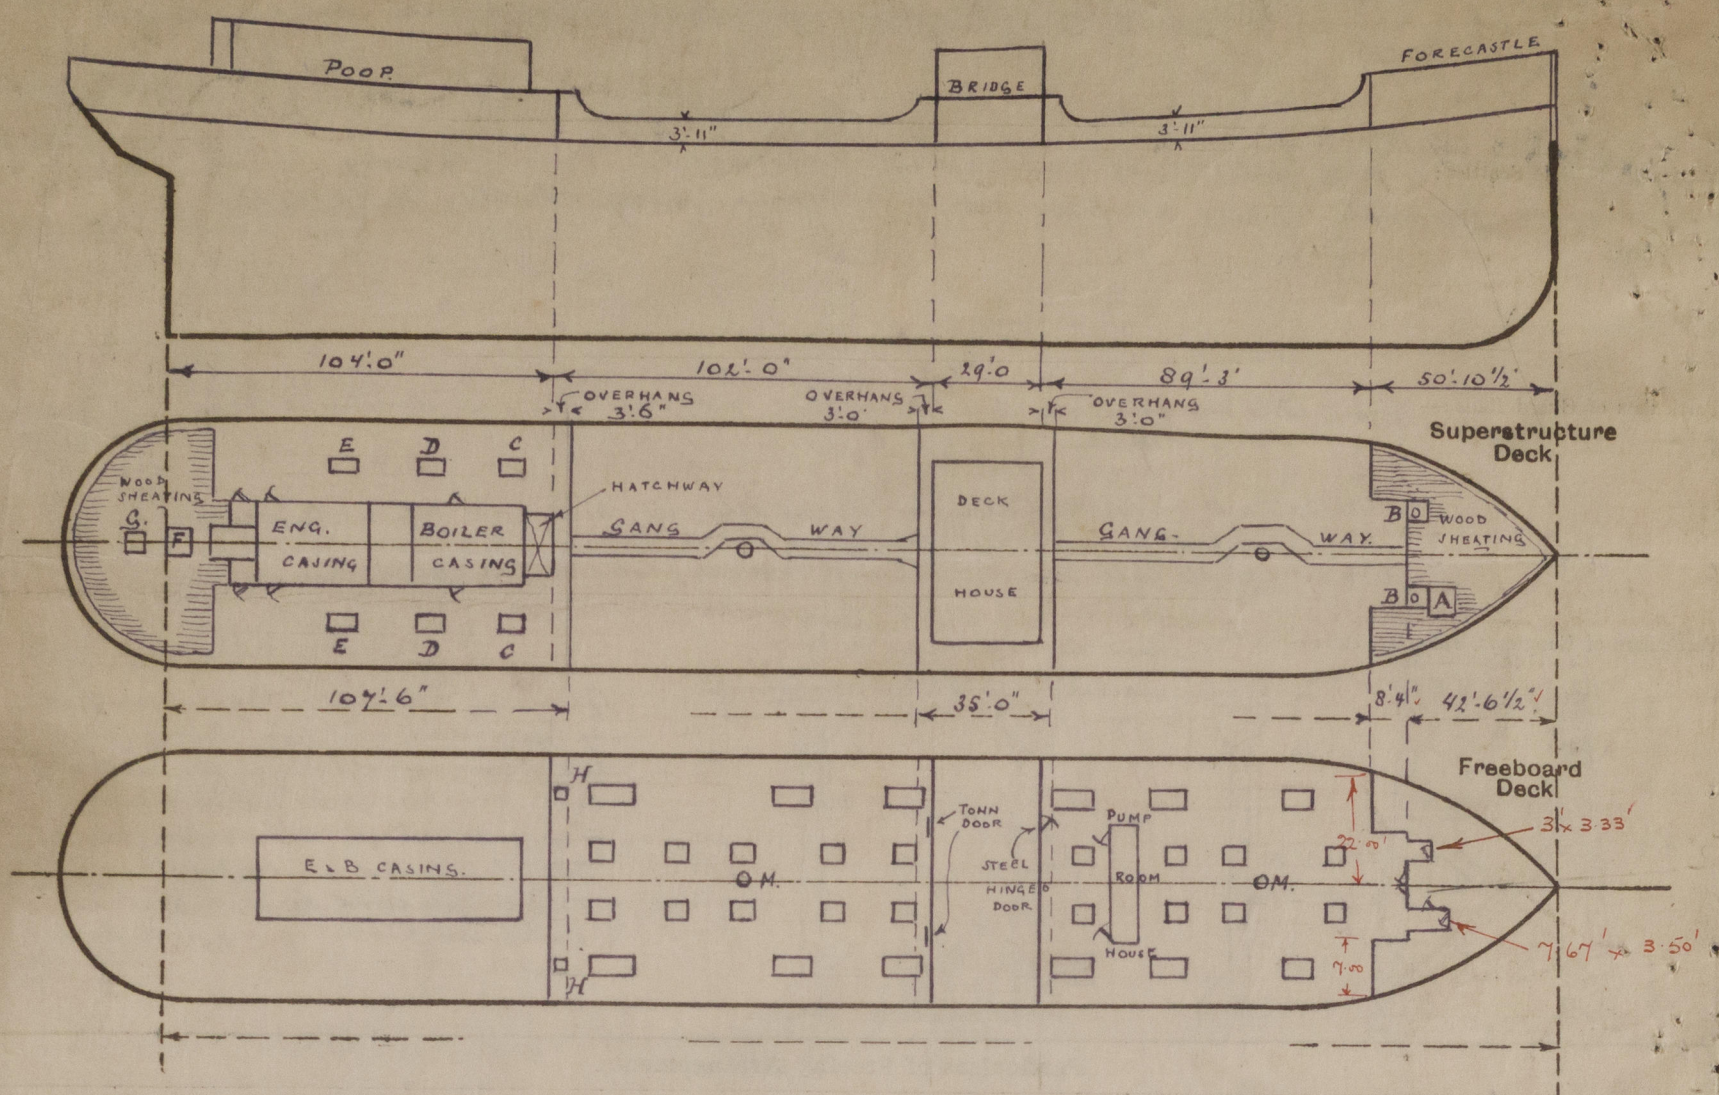 POOP.
BRIDGE
FORECASTLE
3'-11"
3'-11"
104'-0"
102'-0"
29'-0
89'-3'
50'-10½'
OVERHANG
3'-6"
OVERHANG
3'-0'
OVERHANG
3'-0"
Superstructure
Deck
E
D
C
WOOD
SHEATING
G.
F
ENG.
CASING
BOILER
CASING
HATCHWAY
GANG WAY
DECK
HOUSE
GANG- WAY.
B
WOOD
SHEATING
B
A
E
D
C
107'-6"
35'-0"
8'-4"
42'-6½"
Freeboard
Deck
H
E & B CASINGS.
M.
TONN
DOOR
STEEL
HINGED
DOOR
PUMP
ROOM
HOUSE
M.
22.00'
3' x 3.33'
7.67' x 3.50'
7.00
H